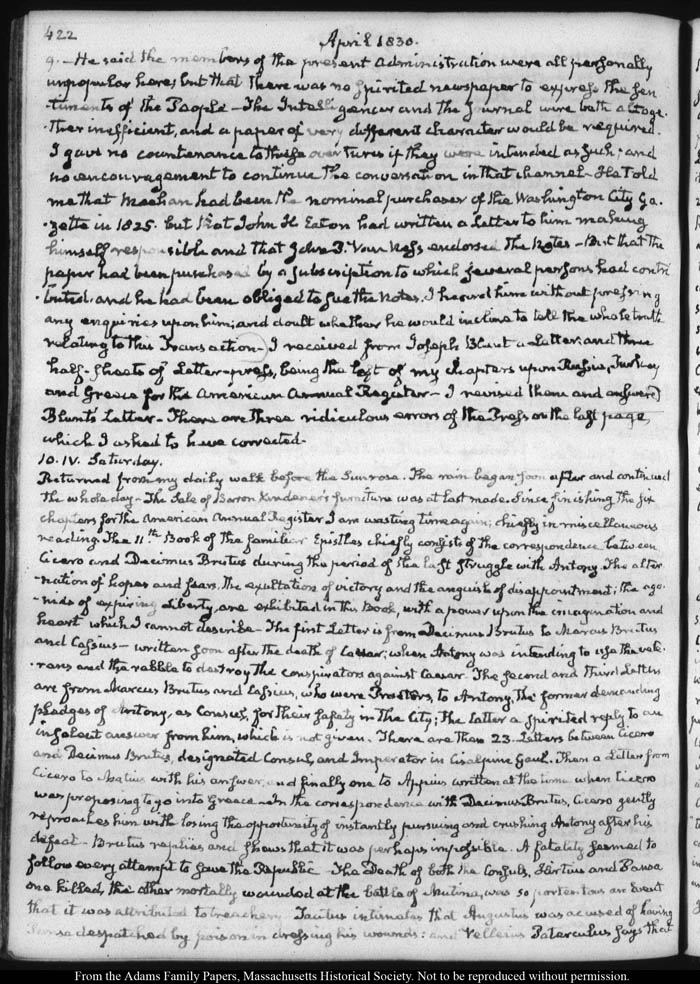 422
April 1830.
9. — He said the members of the present Administration were all personally
unpopular here, but that there was no spirited newspaper to express the sen
timents of the People — The Intelligencer and the Journal were both altoge-
-ther inefficient, and a paper of very different character would be required.
I gave no countenance to these overtures if they were intended as such; and
no encouragement to continue the conversation in that channel — He told
me that Meehan had been the nominal purchaser of the Washington City Ga-
-zette in 1825. but that John H. Eaton had written a Letter to him making
himself responsible and that John P. Van Ness endorsed the Notes — But that the
paper had been purchased by a subscription to which several persons had contri
-buted, and he had been obliged to sue the Notes. I heard him without pressing
any enquiries upon him; and doubt whether he would incline to tell the whole truth
relating to this Transaction — I received from Joseph Blunt a Letter, and three
half-sheets of Letter-press, being the last of my chapters upon Russia, Turkey
and Greece for the American Annual Register — I revised them and answered
Blunt's Letter — There are three ridiculous errors of the Press on the last page,
which I asked to have corrected —
10. IV. Saturday.
Returned from my daily walk before the Sunrose. The rain began soon after and continued
the whole day — The Sale of Baron Krudener's furniture was at last made. Since finishing the six
chapters for the American Annual Register I am wasting time again; chiefly in miscellaneous
reading. The 11th. Book of the familiar Epistles chiefly consists of the correspondence between
Cicero and Decimus Brutus during the period of the last struggle with Antony. The alter
-nation of hopes and fears. The exultation of victory and the anguish of disappointment; the ago-
-nies of expiring Liberty, are exhibited in this Book, with a power upon the imagination and
heart which I cannot describe — The first Letter is from Decimus Brutus to Marcus Brutus
and Cassius — written soon after the death of Caesar; when Antony was intending to use the vete-
-rans and the rabble to destroy the conspirators against Caesar. The second and Third Letters
are from Marcus Brutus and Cassius, who were Praetors, to Antony, The former demanding
pledges of Antony, as Consul, for their safety in The City; the latter a spirited reply to an
insolent answer from him, which is not given. There are then 23. Letters between Cicero
and Decimus Brutus, designated Consul, and Imperator in Cisalpine Gaul. Then a Letter from
Cicero to Matius with his answer, and finally one to Appius written at the time when Cicero
was proposing to go into Greece — In the correspondence with Decimus Brutus, Cicero gently
reproaches him with losing the opportunity of instantly pursuing and crushing Antony after his
defeat — Brutus replies and shews that it was perhaps impossible. A fatality seemed to
follow every attempt to save the Republic — The Death of both the Consuls, Hirtius and Pansa
one killed, the other mortally wounded at the battle of Mutina, was so portentous an Event
that it was attributed to treachery. Tacitus intimates that Augustus was accused of having
Pansa despatched by poison in dressing his wounds: and Velleius Paterculus says that
From the Adams Family Papers, Massachusetts Historical Society. Not to be reproduced without permission.